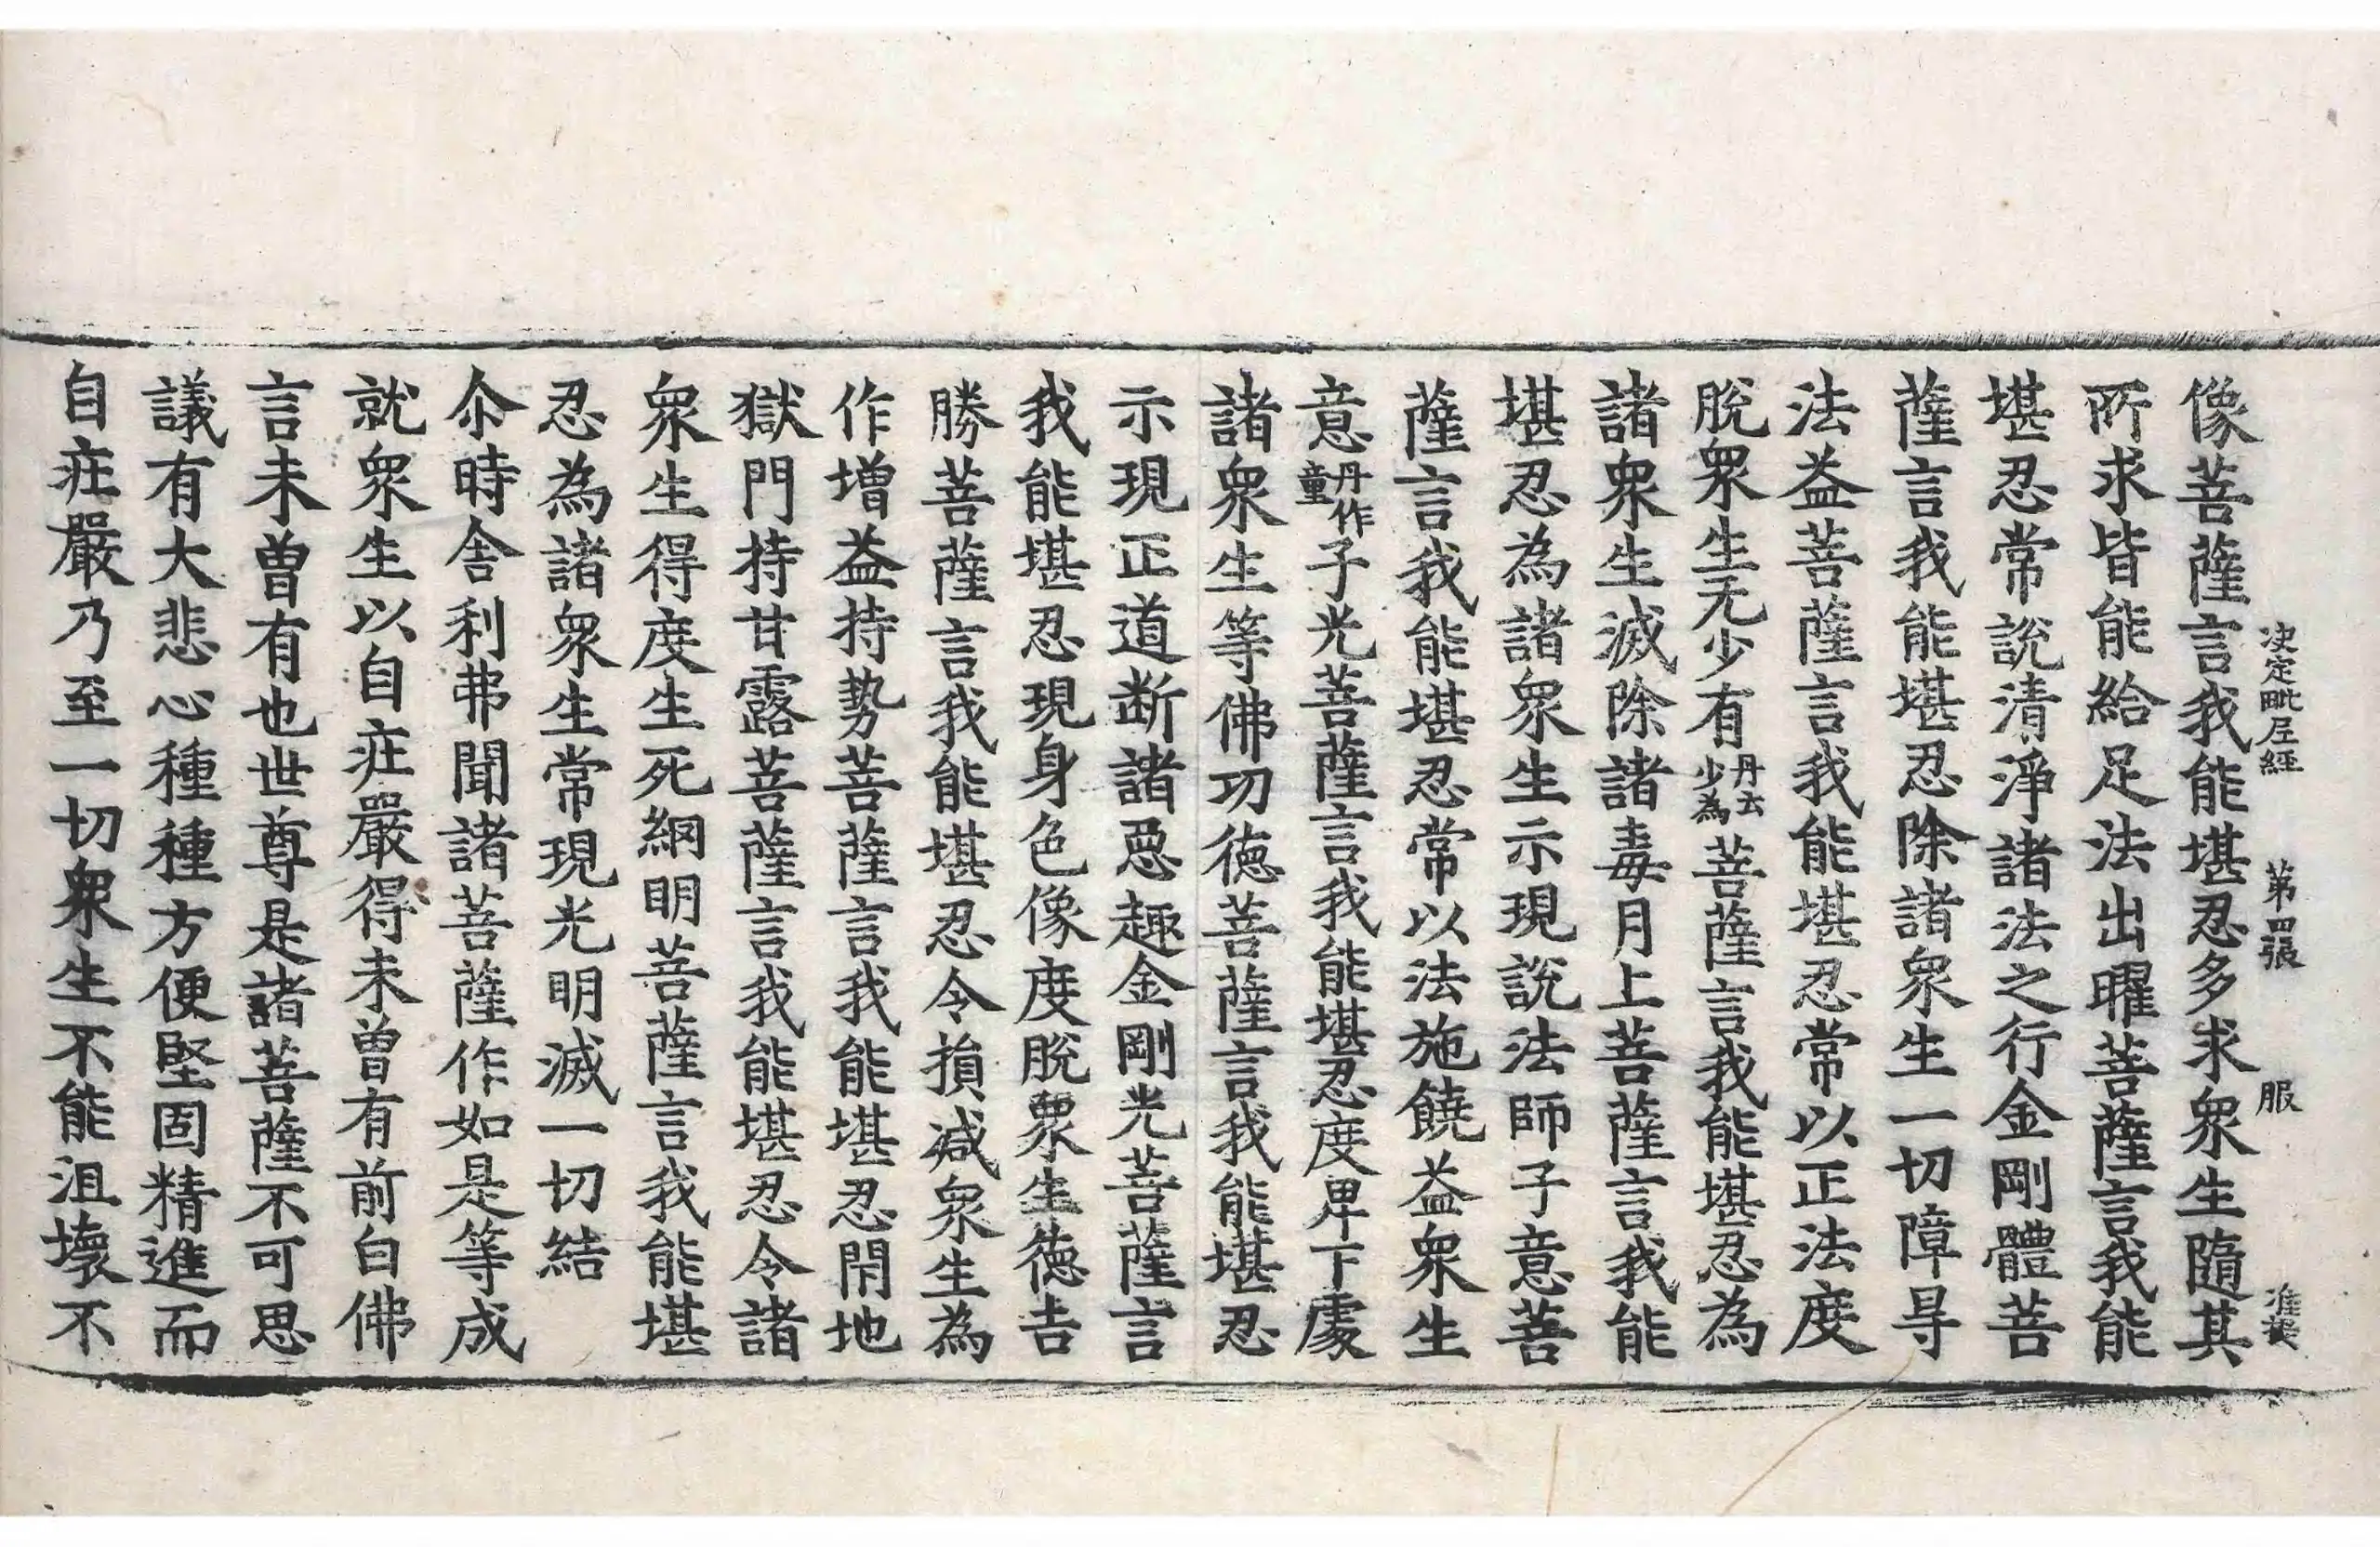 決定毗尼經 第四張 服
像菩薩言我能堪忍多求衆生隨其
所求皆能給足法出曜菩薩言我能
堪忍常說清淨諸法之行金剛體菩
薩言我能堪忍除諸衆生一切障㝵
法益菩薩言我能堪忍常以正法度
脫衆生无少有丹云少為菩薩言我能堪忍為
諸衆生滅除諸毒月上菩薩言我能
堪忍為諸衆生示現說法師子意菩
薩言我能堪忍常以法施饒益衆生
意丹作童子光菩薩言我能堪忍度卑下處
諸衆生等佛功德菩薩言我能堪忍
示現正道断諸惡趣金剛光菩薩言
我能堪忍現身色像度脫衆生德吉
勝菩薩言我能堪忍令損減衆生為
作增益持勢菩薩言我能堪忍閇地
獄門持甘露菩薩言我能堪忍令諸
衆生得度生死網明菩薩言我能堪
忍為諸衆生常現光明滅一切結
尒時舍利弗聞諸菩薩作如是等成
就衆生以自庄嚴得未曾有前白佛
言未曾有也世尊是諸菩薩不可思
議有大悲心種種方便堅固精進而
自庄嚴乃至一切衆生不能沮壞不